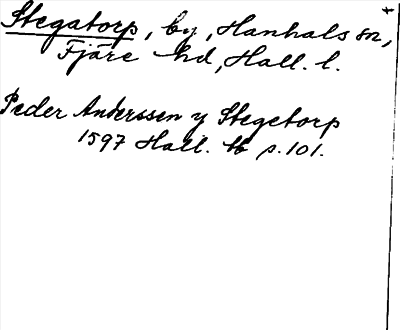 Stegatorp, by, Hanhals sn,
Fjäre hd, Hall. l.
Peder Anderssen y Stegetorp
1597 Hall. tb p. 101.